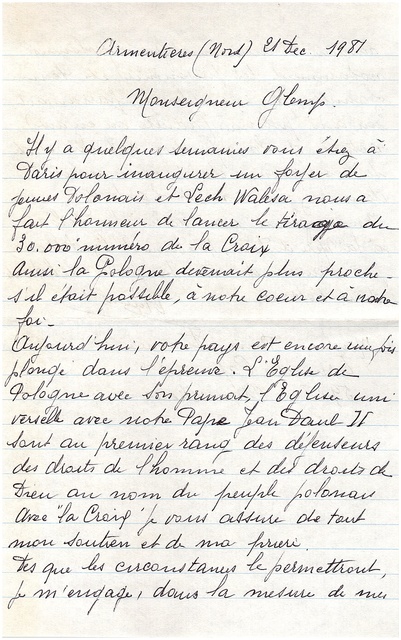 Armentieres (Nord) 21 Dec. 1981
Monseigneur Glemp.
Il y a quelques semaines vous étiez à
Paris pour inaugurer un foyer de
jeunes Polonais et Lech Walesa nous a
fait l'honneur de lancer le tirage du
30.000 numéro de la Croix
Ainsi la Pologne devenait plus proche
s'il était possible, à notre coeur et à notre
foi.
Aujourd'hui, votre pays est encore une fois
plongé dans l'épreuve. L'Eglise de
Pologne avec son primat, l'Eglise uni
verselle avec notre Pape Jean Paul II
sont au premier rang des défenseurs
des droits de l'homme et des droits de
Dieu au nom du peuple polonais
Avec "la Croix" je vous assure de tout
mon soutien et de ma prière.
Dès que les circonstances le permettront,
je m'engage, dans la mesure de mes